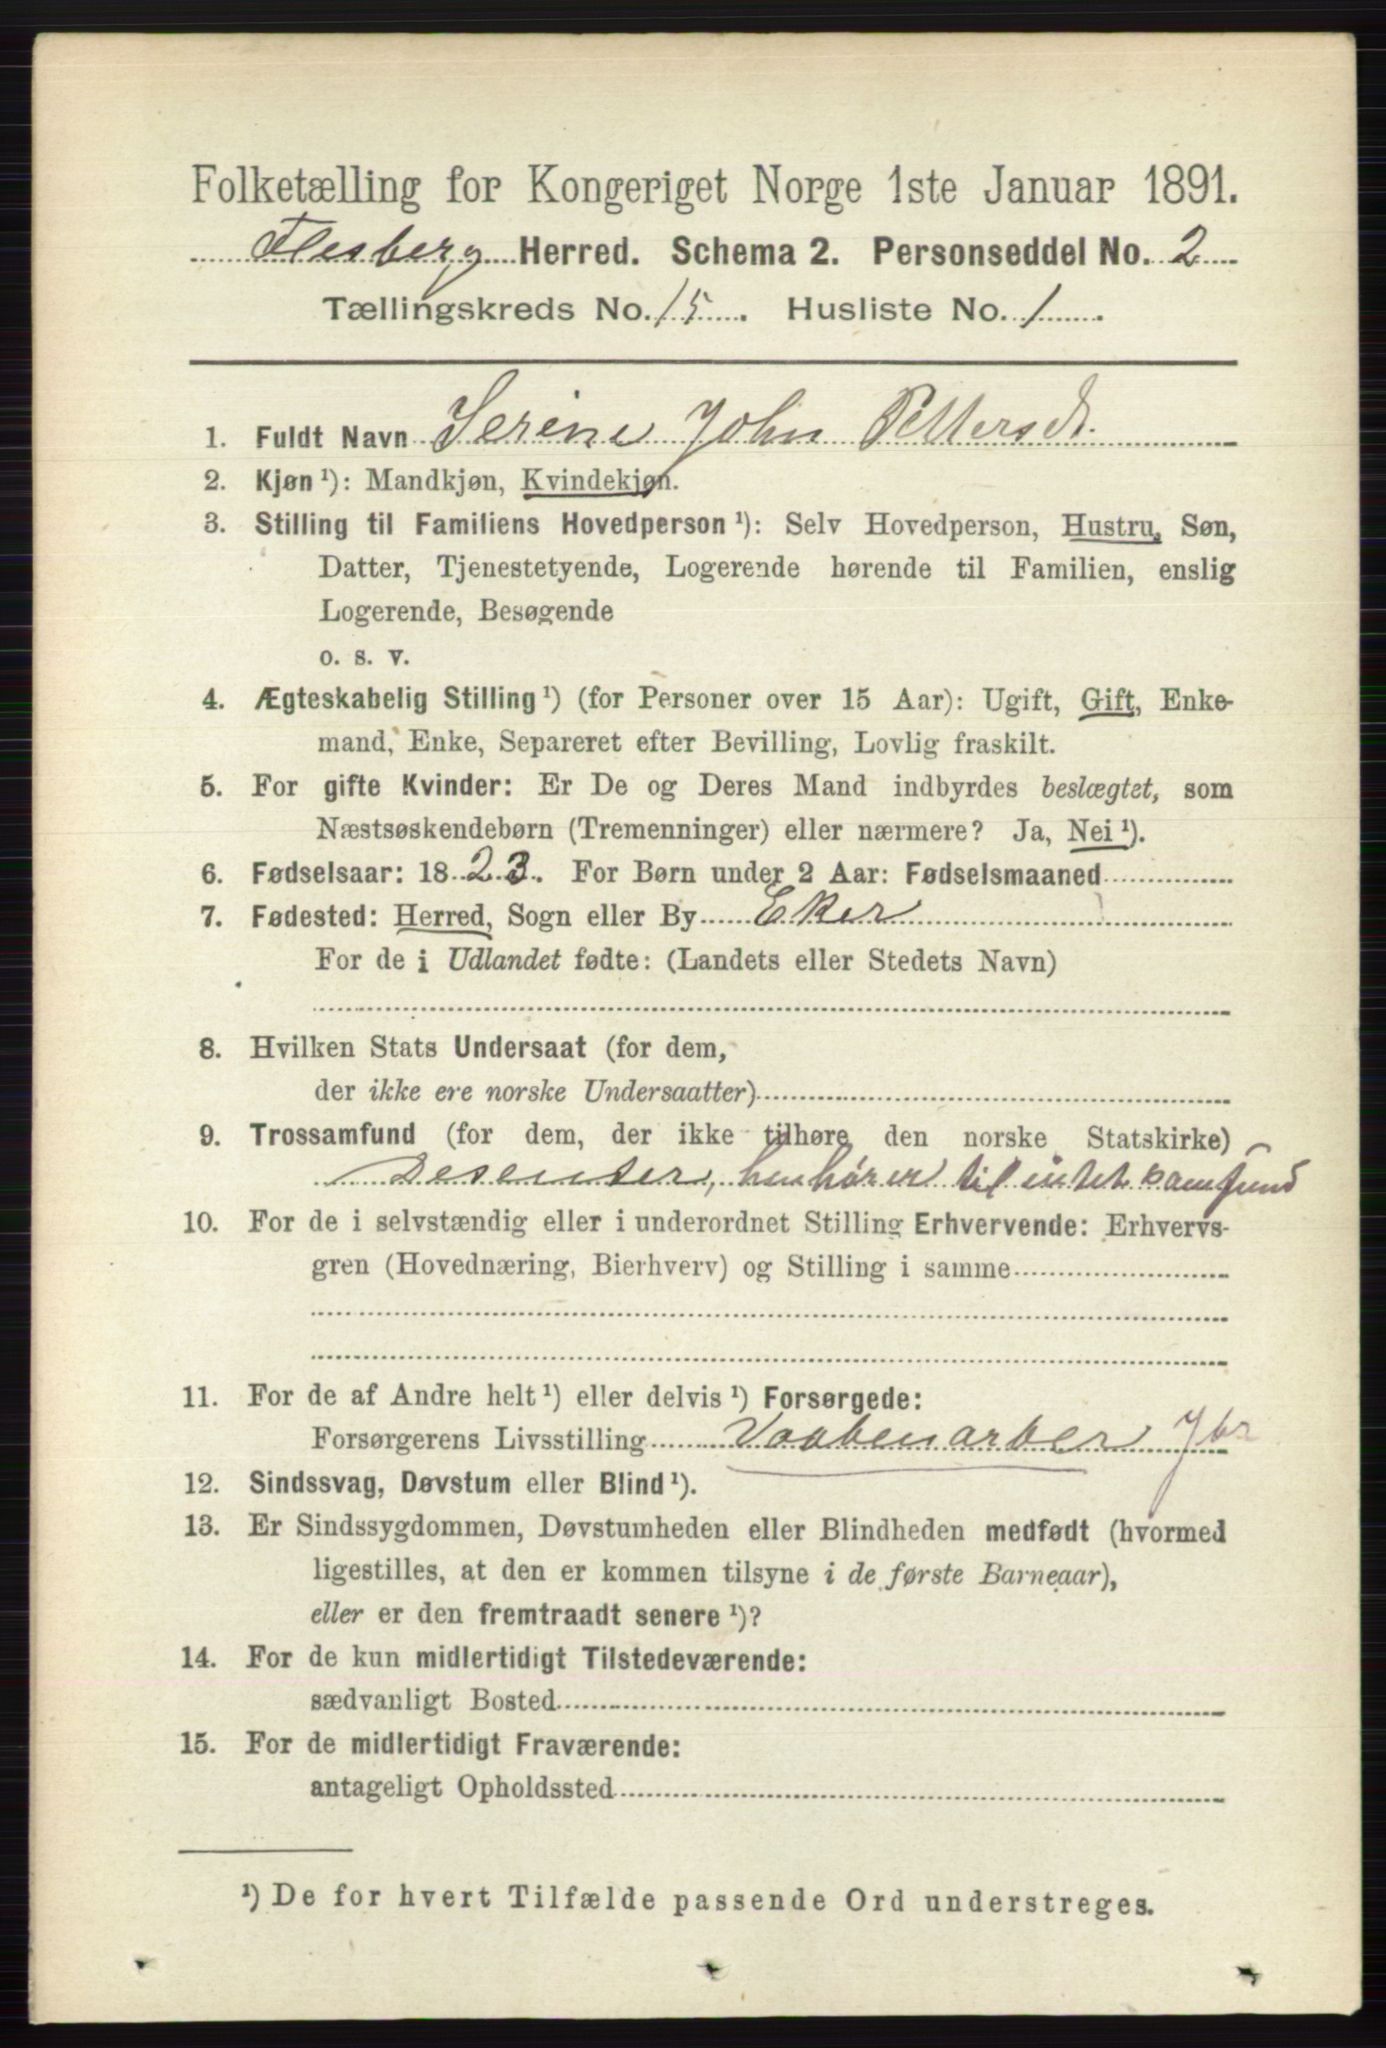 Folketælling for Kongeriget Norge 1ste Januar 1891.
Flesberg Herred. Schema 2. Personseddel No. 2
Tællingskreds No. 15. Husliste No. 1
1. Fuldt Navn Serine John Pettersdt.
2. Kjøn ¹): Mandkjøn, Kvindekjøn.
3. Stilling til Familiens Hovedperson ¹): Selv Hovedperson, Hustru, Søn,
Datter, Tjenestetyende, Logerende hørende til Familien, enslig
Logerende, Besøgende
o. s. v.
4. Ægteskabelig Stilling ¹) (for Personer over 15 Aar): Ugift, Gift, Enke-
mand, Enke, Separeret efter Bevilling, Lovlig fraskilt.
5. For gifte Kvinder: Er De og Deres Mand indbyrdes beslægtet, som
Næstsøskendebørn (Tremenninger) eller nærmere? Ja, Nei ¹).
6. Fødselsaar: 1823. For Børn under 2 Aar: Fødselsmaaned
7. Fødested: Herred, Sogn eller By Eker
For de i Udlandet fødte: (Landets eller Stedets Navn)
8. Hvilken Stats Undersaat (for dem,
der ikke ere norske Undersaatter)
9. Trossamfund (for dem, der ikke tilhøre den norske Statskirke)
Desenter, henhører til intet samfund
10. For de i selvstændig eller i underordnet Stilling Erhvervende: Erhvervs-
gren (Hovednæring, Bierhverv) og Stilling i samme
11. For de af Andre helt ¹) eller delvis ¹) Forsørgede:
Forsørgerens Livsstilling Vaabenarber
12. Sindssvag, Døvstum eller Blind ¹).
13. Er Sindssygdommen, Døvstumheden eller Blindheden medfødt (hvormed
ligestilles, at den er kommen tilsyne i de første Barneaar),
eller er den fremtraadt senere ¹)?
14. For de kun midlertidigt Tilstedeværende:
sædvanligt Bosted
15. For de midlertidigt Fraværende:
antageligt Opholdssted
¹) De for hvert Tilfælde passende Ord understreges.